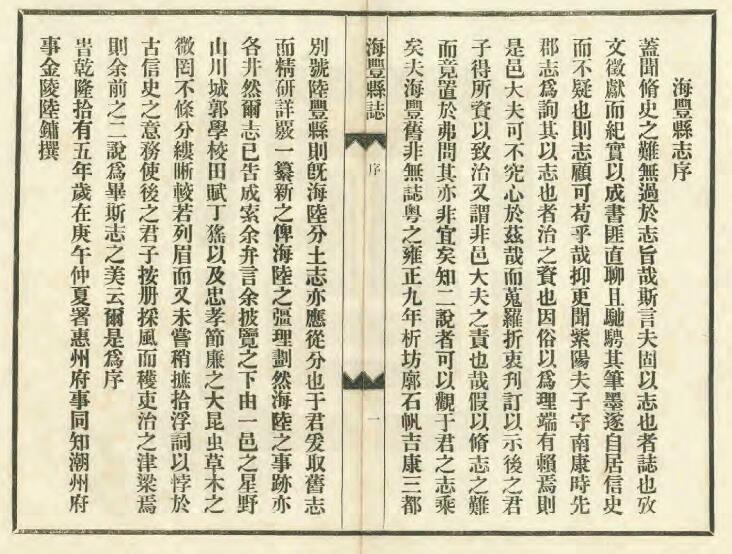 海豐縣志序
蓋聞脩史之難無過於志旨哉斯言夫固以志也者誌也攷
文徵獻而紀實以成書匪直聊且馳騁其筆墨遂自居信史
而不疑也則志顧可苟乎哉抑更聞紫陽夫子守南康時先
郡志爲詢其以志也者治之資也因俗以爲理端有賴焉則
是邑大夫可不究心於茲哉而蒐羅折衷刋訂以示後之君
子得所資以致治又謂非邑大夫之責也哉假以脩志之難
而竟置於弗問其亦非宜矣知二說者可以觀于君之志乘
矣夫海豐舊非無誌粤之雍正九年析坊廓石帆吉康三都
海豐縣誌
序
一
別號陸豐縣則旣海陸分土志亦應從分也于君爰取舊志
而精研詳覈一纂新之俾海陸之彊理劃然海陸之事跡亦
各井然爾志已告成索余弁言余披覽之下由一邑之星野
山川城郭學校田賦丁猺以及忠孝節廉之大昆虫草木之
微罔不條分縷晰較若列眉而又未嘗稍摭拾浮詞以悖於
古信史之意務使後之君子按册採風而穫吏治之津梁焉
則余前之二說爲畢斯志之美云爾是爲序
旹乾隆拾有五年歲在庚午仲夏署惠州府事同知潮州府
事金陵陸鏞撰